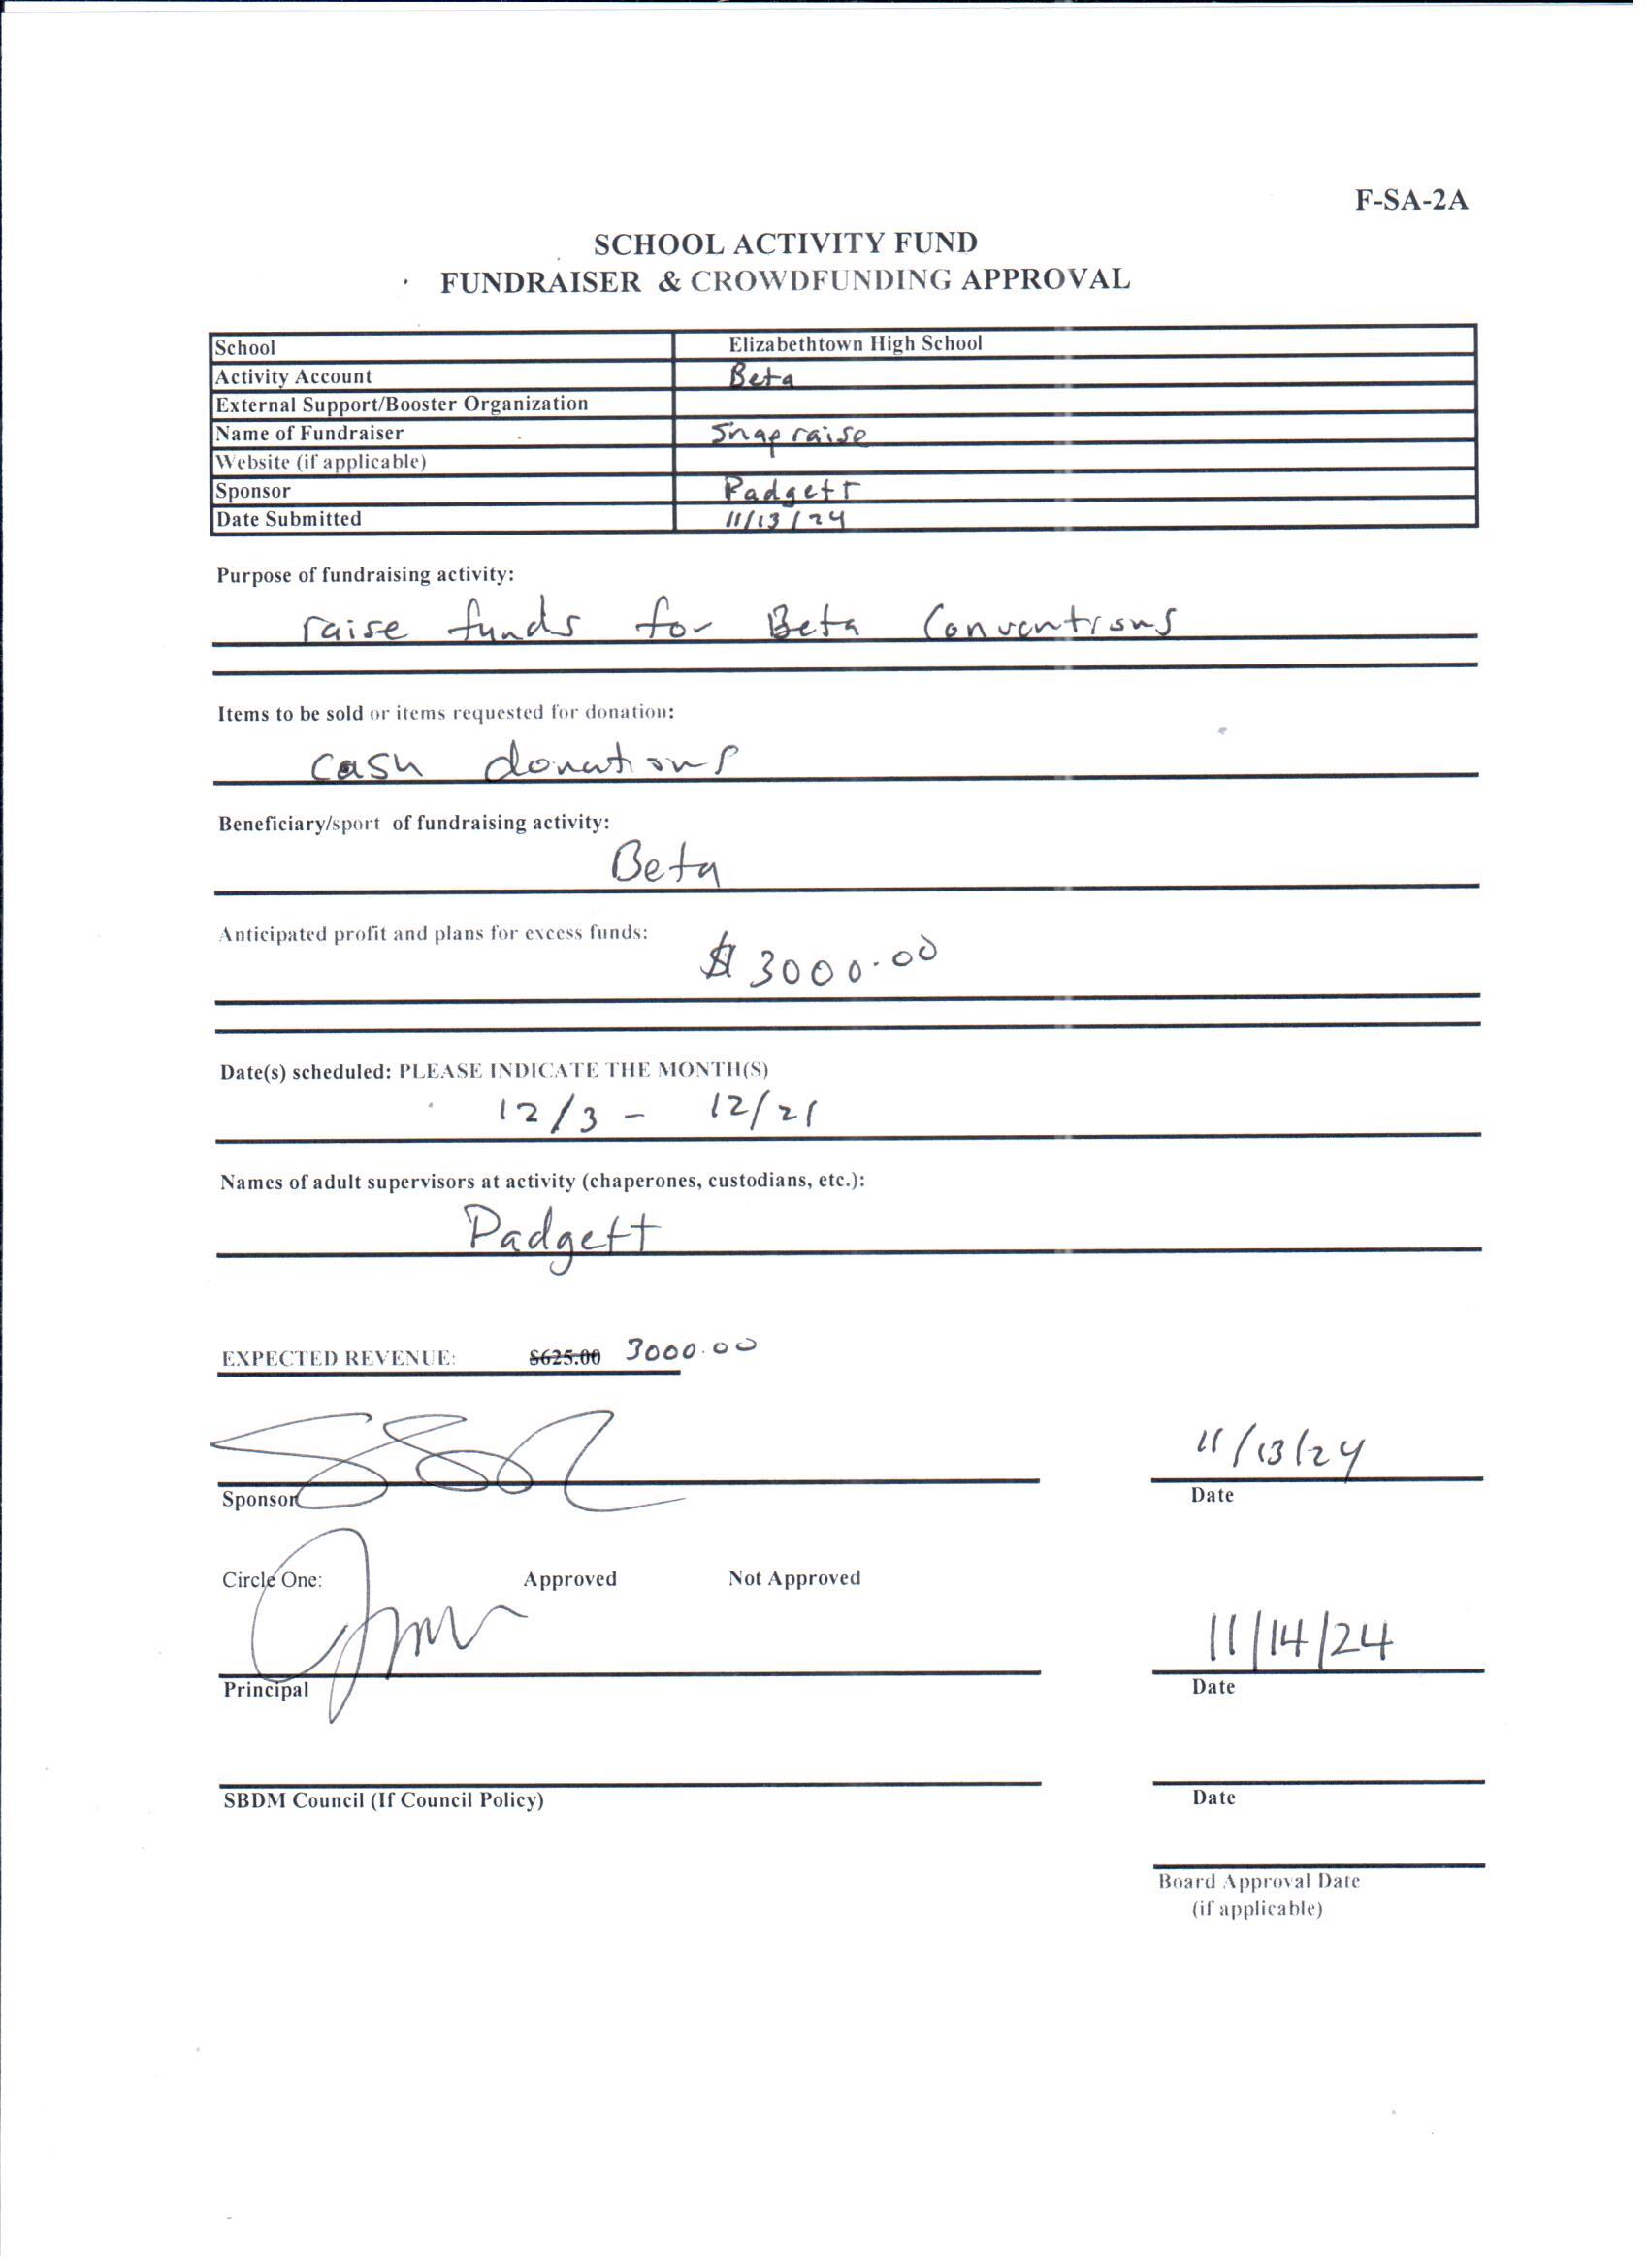 F-SA-2A
SCHOOL ACTIVITY FUND
FUNDRAISER & CROWDFUNDING APPROVAL
School Elizabethtown High School
Activity Account Beta
External Support/Booster Organization
Name of Fundraiser Snap raise
Website (if applicable)
Sponsor Padgett
Date Submitted 11/13/24
Purpose of fundraising activity:
raise funds for Beta Conventions
Items to be sold or items requested for donation:
cash donations
Beneficiary/sport of fundraising activity:
Beta
Anticipated profit and plans for excess funds:
$3000.00
Date(s) scheduled: PLEASE INDICATE THE MONTH(S)
12/3 - 12/21
Names of adult supervisors at activity (chaperones, custodians, etc.):
Padgett
EXPECTED REVENUE: $625.00 3000.00
11/13/24
Sponsor Date
Circle One: Approved Not Approved
11/14/24
Principal Date
SBDM Council (If Council Policy) Date
Board Approval Date
(if applicable)